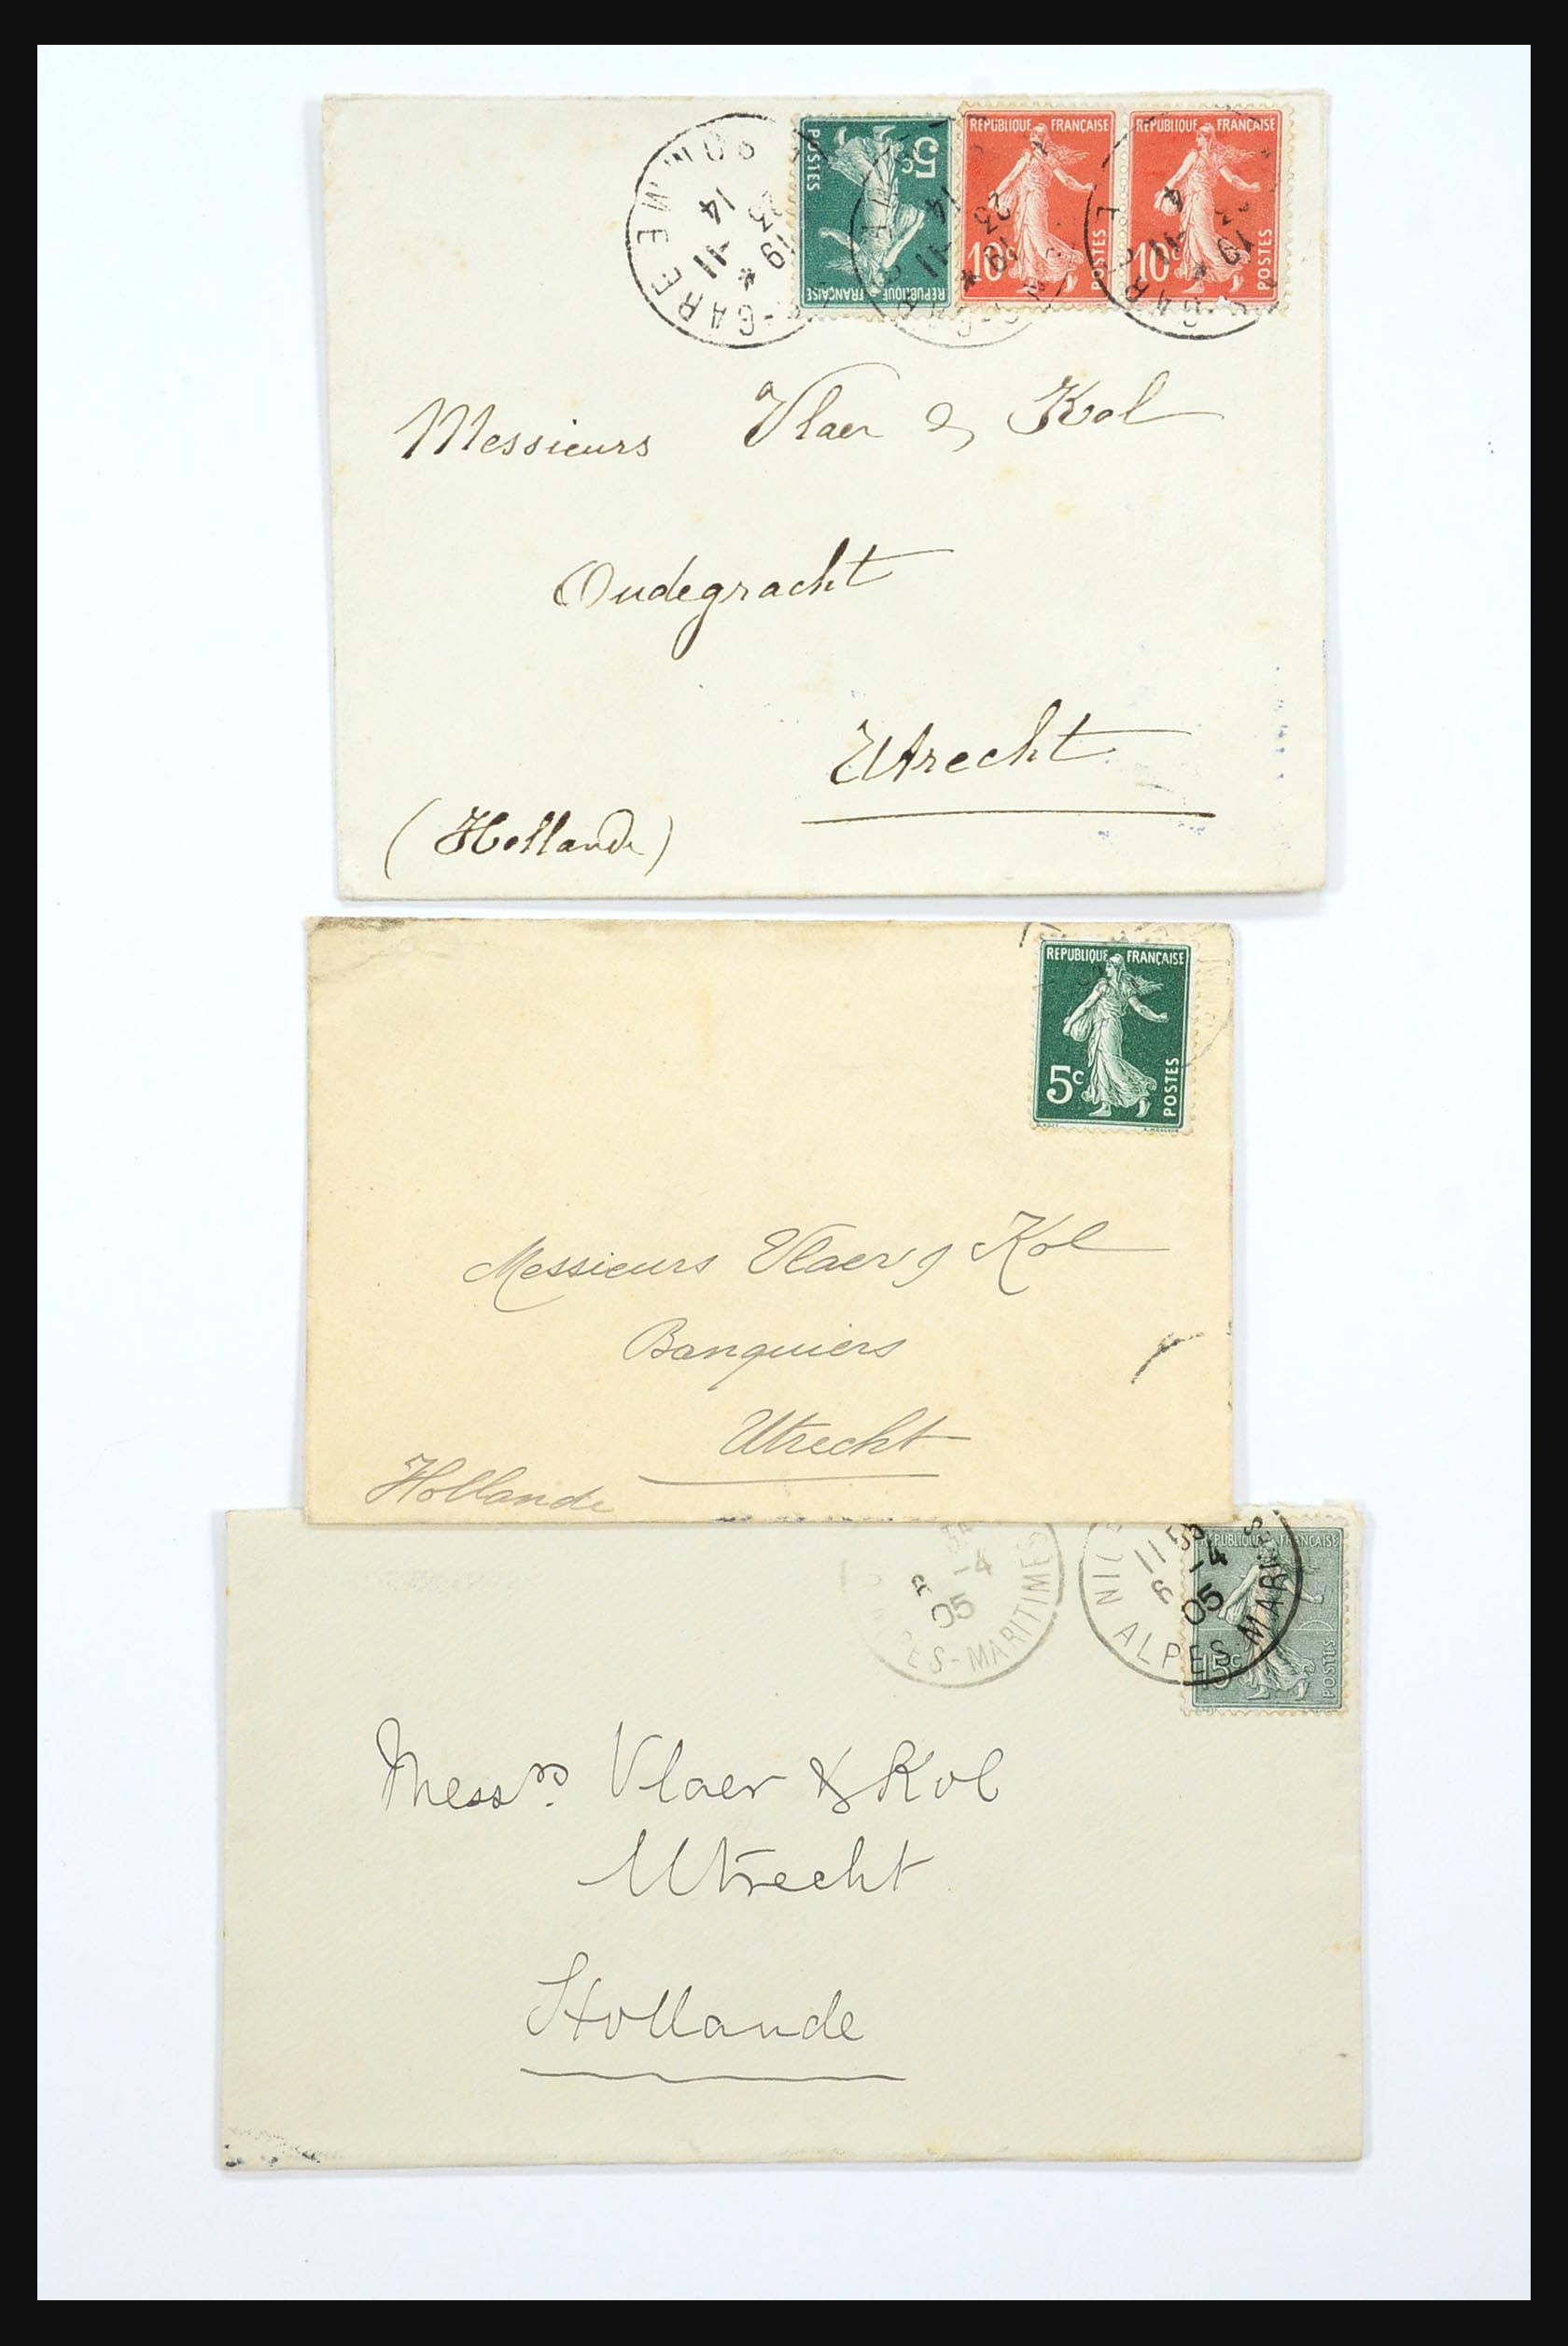 SOMME
GARE
19 *
23 -11
14
5c
POSTES
REPUBLIQUE FRANÇAISE
REPUBLIQUE FRANÇAISE
10c POSTES
REPUBLIQUE FRANÇAISE
10c POSTES
Messieurs Vlaer & Kol
Oudegracht
Utrecht
(Hollande)
REPUBLIQUE FRANÇAISE
5c POSTES
Messieurs Vlaer & Kol
Banquiers
Utrecht
Hollande
-4
05
ES-MARITIMES
NICE
11 55
6 -4
05
ALPES-MARITMES
REPUBLIQUE FRANÇAISE
15c POSTES
Messrs. Vlaer & Kol
Utrecht
Hollande